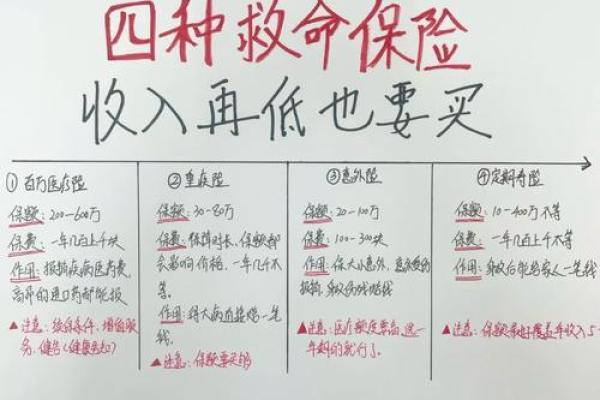 四种救命保险
收入再低也要买
①百万医疗险
保额：200-600万
保费：一年几百上千块
作用：报销疾病医疗费，
高昂的进口药都能报
▲注意：续保条件、增值服
务、健告（健康告知）
②重疾险
保额：30-80万
保费：保障时长、保额都
会影响价格，一年几千不
等。
作用：得大病直接赔一笔
钱。
▲注意：保额要买够
③意外险
保额：20-100万
保费：100-300块
作用：保大小意外，意外医疗
报销，身故伤残赔钱
▲注意：医疗额度要高，选一
年期的就行了。
④定期寿险
保额：10-400万不等
保费：一年几百上千不等
作用：身故后能给家人一笔钱
▲注意：保额最好覆盖年收入5-